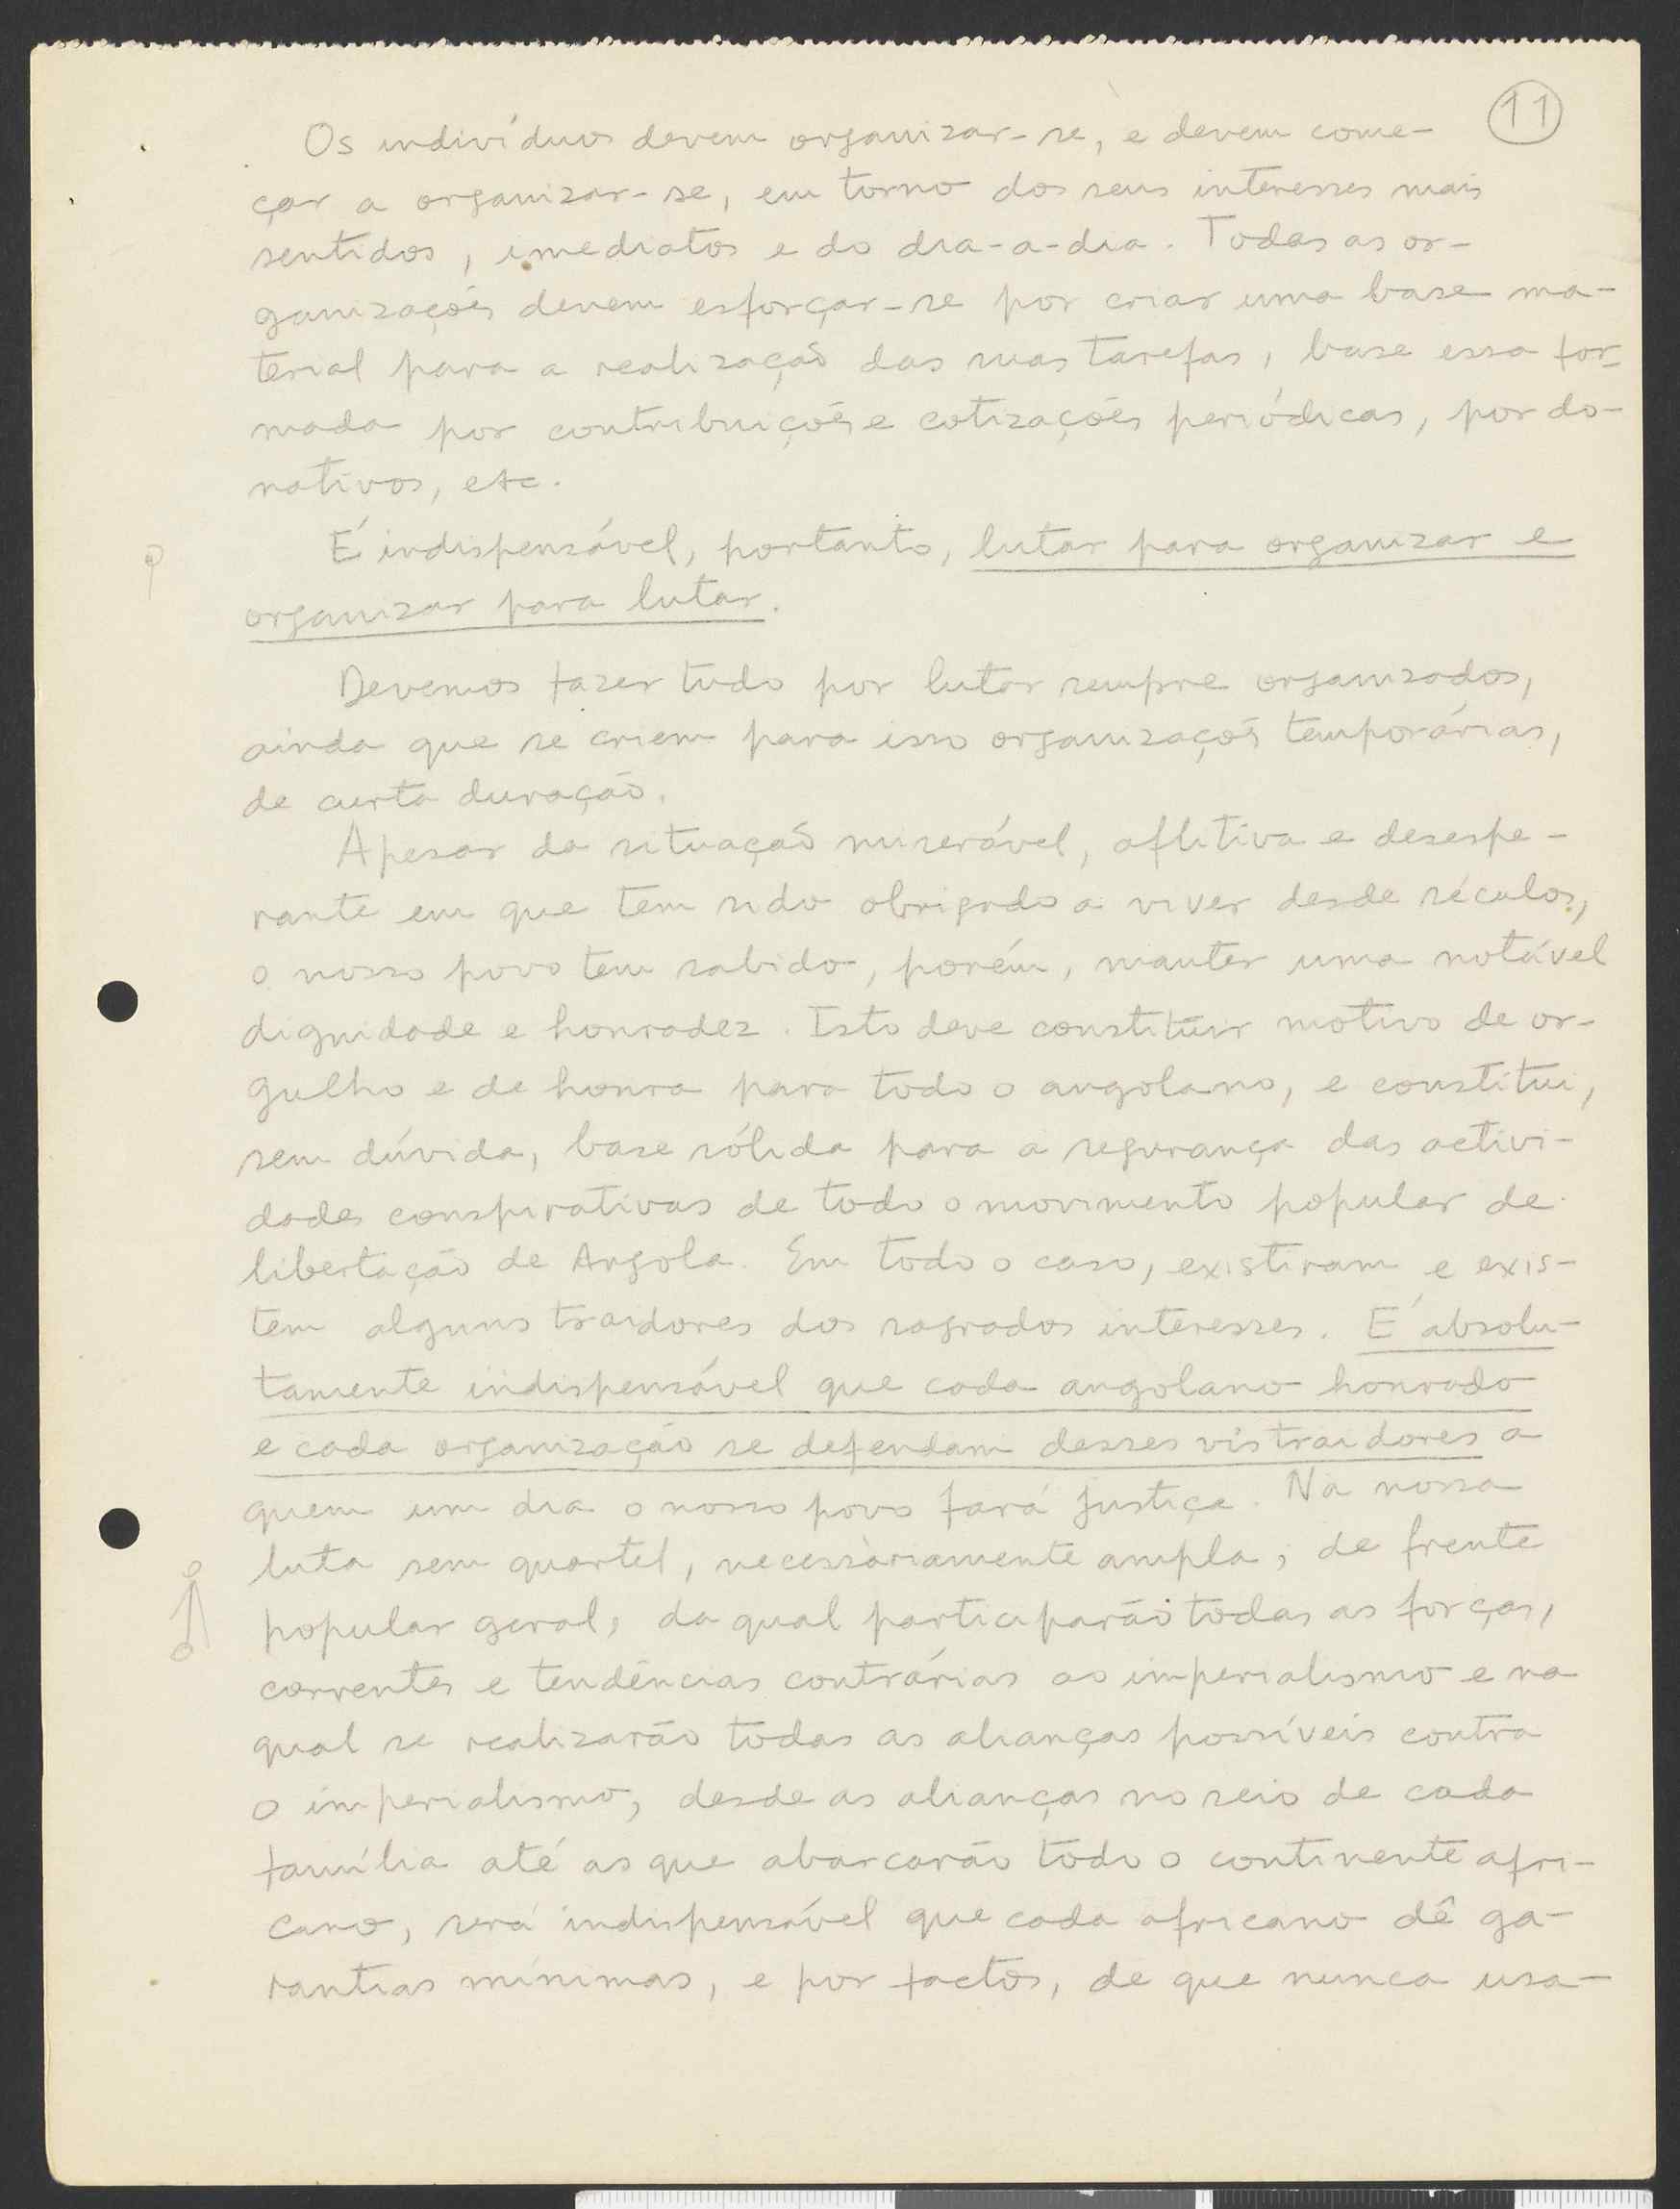 11
Os indivíduos devem organizar-se, e devem come-
çar a organizar-se, em torno dos seus interesses mais
sentidos, imediatos e do dia-a-dia. Todas as or-
ganizações devem esforçar-se por criar uma base ma-
terial para a realização das suas tarefas, base essa for-
mada por contribuições e cotizações periódicas, por do-
nativos, etc.
É indispensável, portanto, lutar para organizar e
organizar para lutar.
Devemos fazer tudo por lutar sempre organizados,
ainda que se criem para isso organizações temporárias,
de curta duração.
Apesar da situação miserável, aflitiva e desespe-
rante em que tem sido obrigado a viver desde séculos,
o nosso povo tem sabido, porém, manter uma notável
dignidade e honradez. Isto deve constituir motivo de or-
gulho e de honra para todo o angolano, e constitui,
sem dúvida, base sólida para a segurança das activi-
dades conspirativas de todo o movimento popular de
libertação de Angola. Em todo o caso, existiram e exis-
tem alguns traidores dos sagrados interesses. É absolu-
tamente indispensável que cada angolano honrado
e cada organização se defendam desses vis traidores a
quem um dia o nosso povo fará justiça. Na nossa
luta sem quartel, necessàriamente ampla, de frente
popular geral, da qual participarão todas as forças,
correntes e tendências contrárias ao imperialismo e na
qual se realizarão todas as alianças possíveis contra
o imperialismo, desde as alianças no seio de cada
família até as que abarcarão todo o continente afri-
cano, será indispensável que cada africano dê ga-
rantias mínimas, e por factos, de que nunca usa-